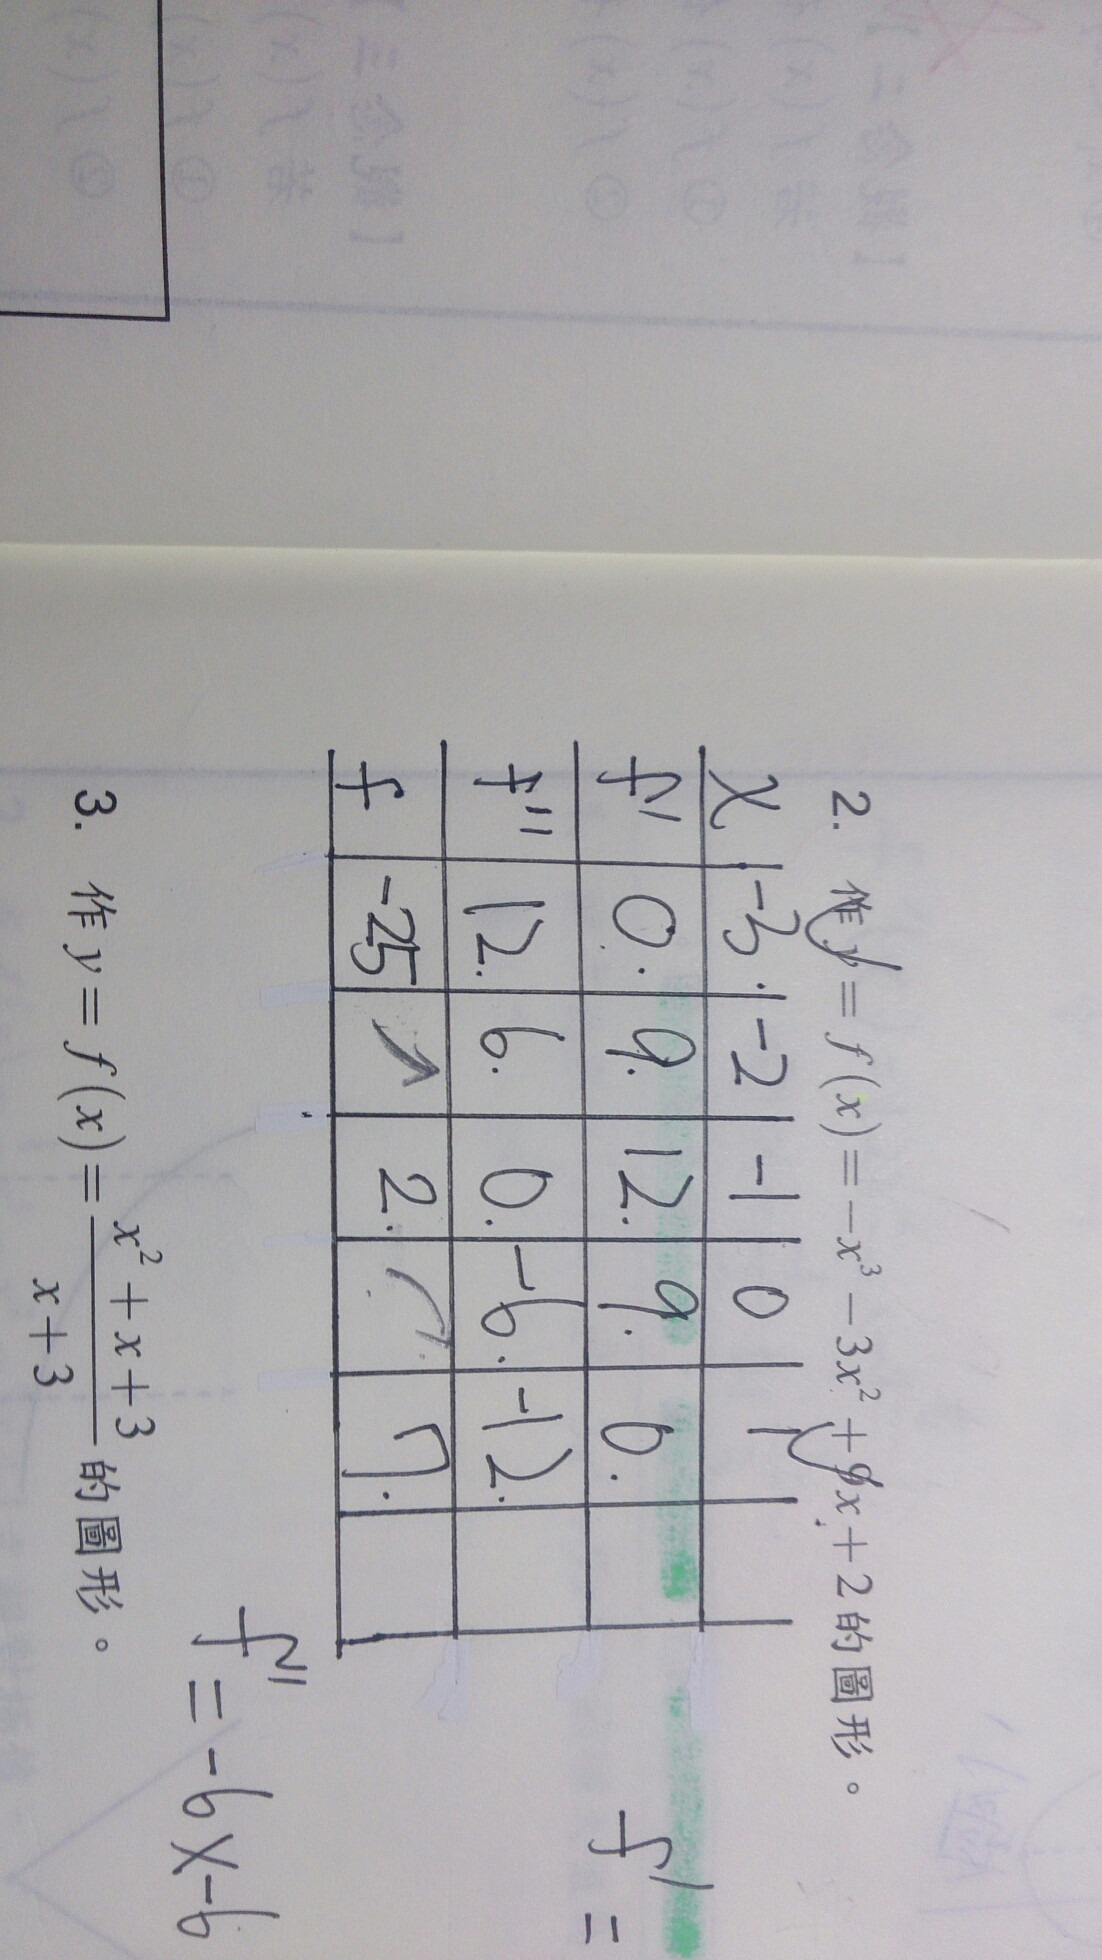 2. 作 y = f(x) = -x³ - 3x² + 9x + 2 的圖形。
x -3. -2 -1 0 1
f' 0. 9. 12. 9. 0.
f'' 12. 6. 0. -6. -12.
f -25 ↗ 2. 7.
f' =
f'' = -6x-6
3. 作 y = f(x) = (x² + x + 3)/(x + 3) 的圖形。